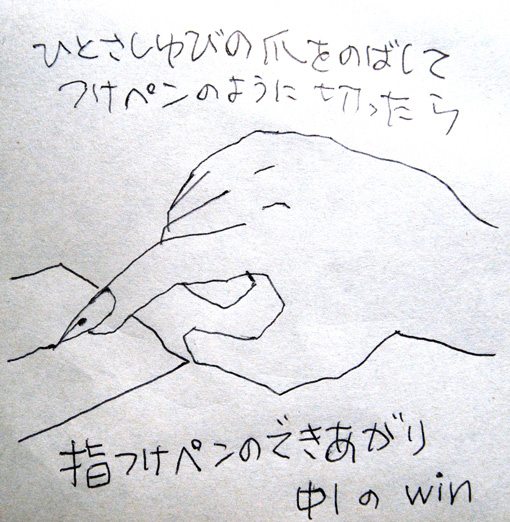 ひとさしゆびの爪をのばして
つけペンのように切ったら
指つけペンのできあがり
中1の win